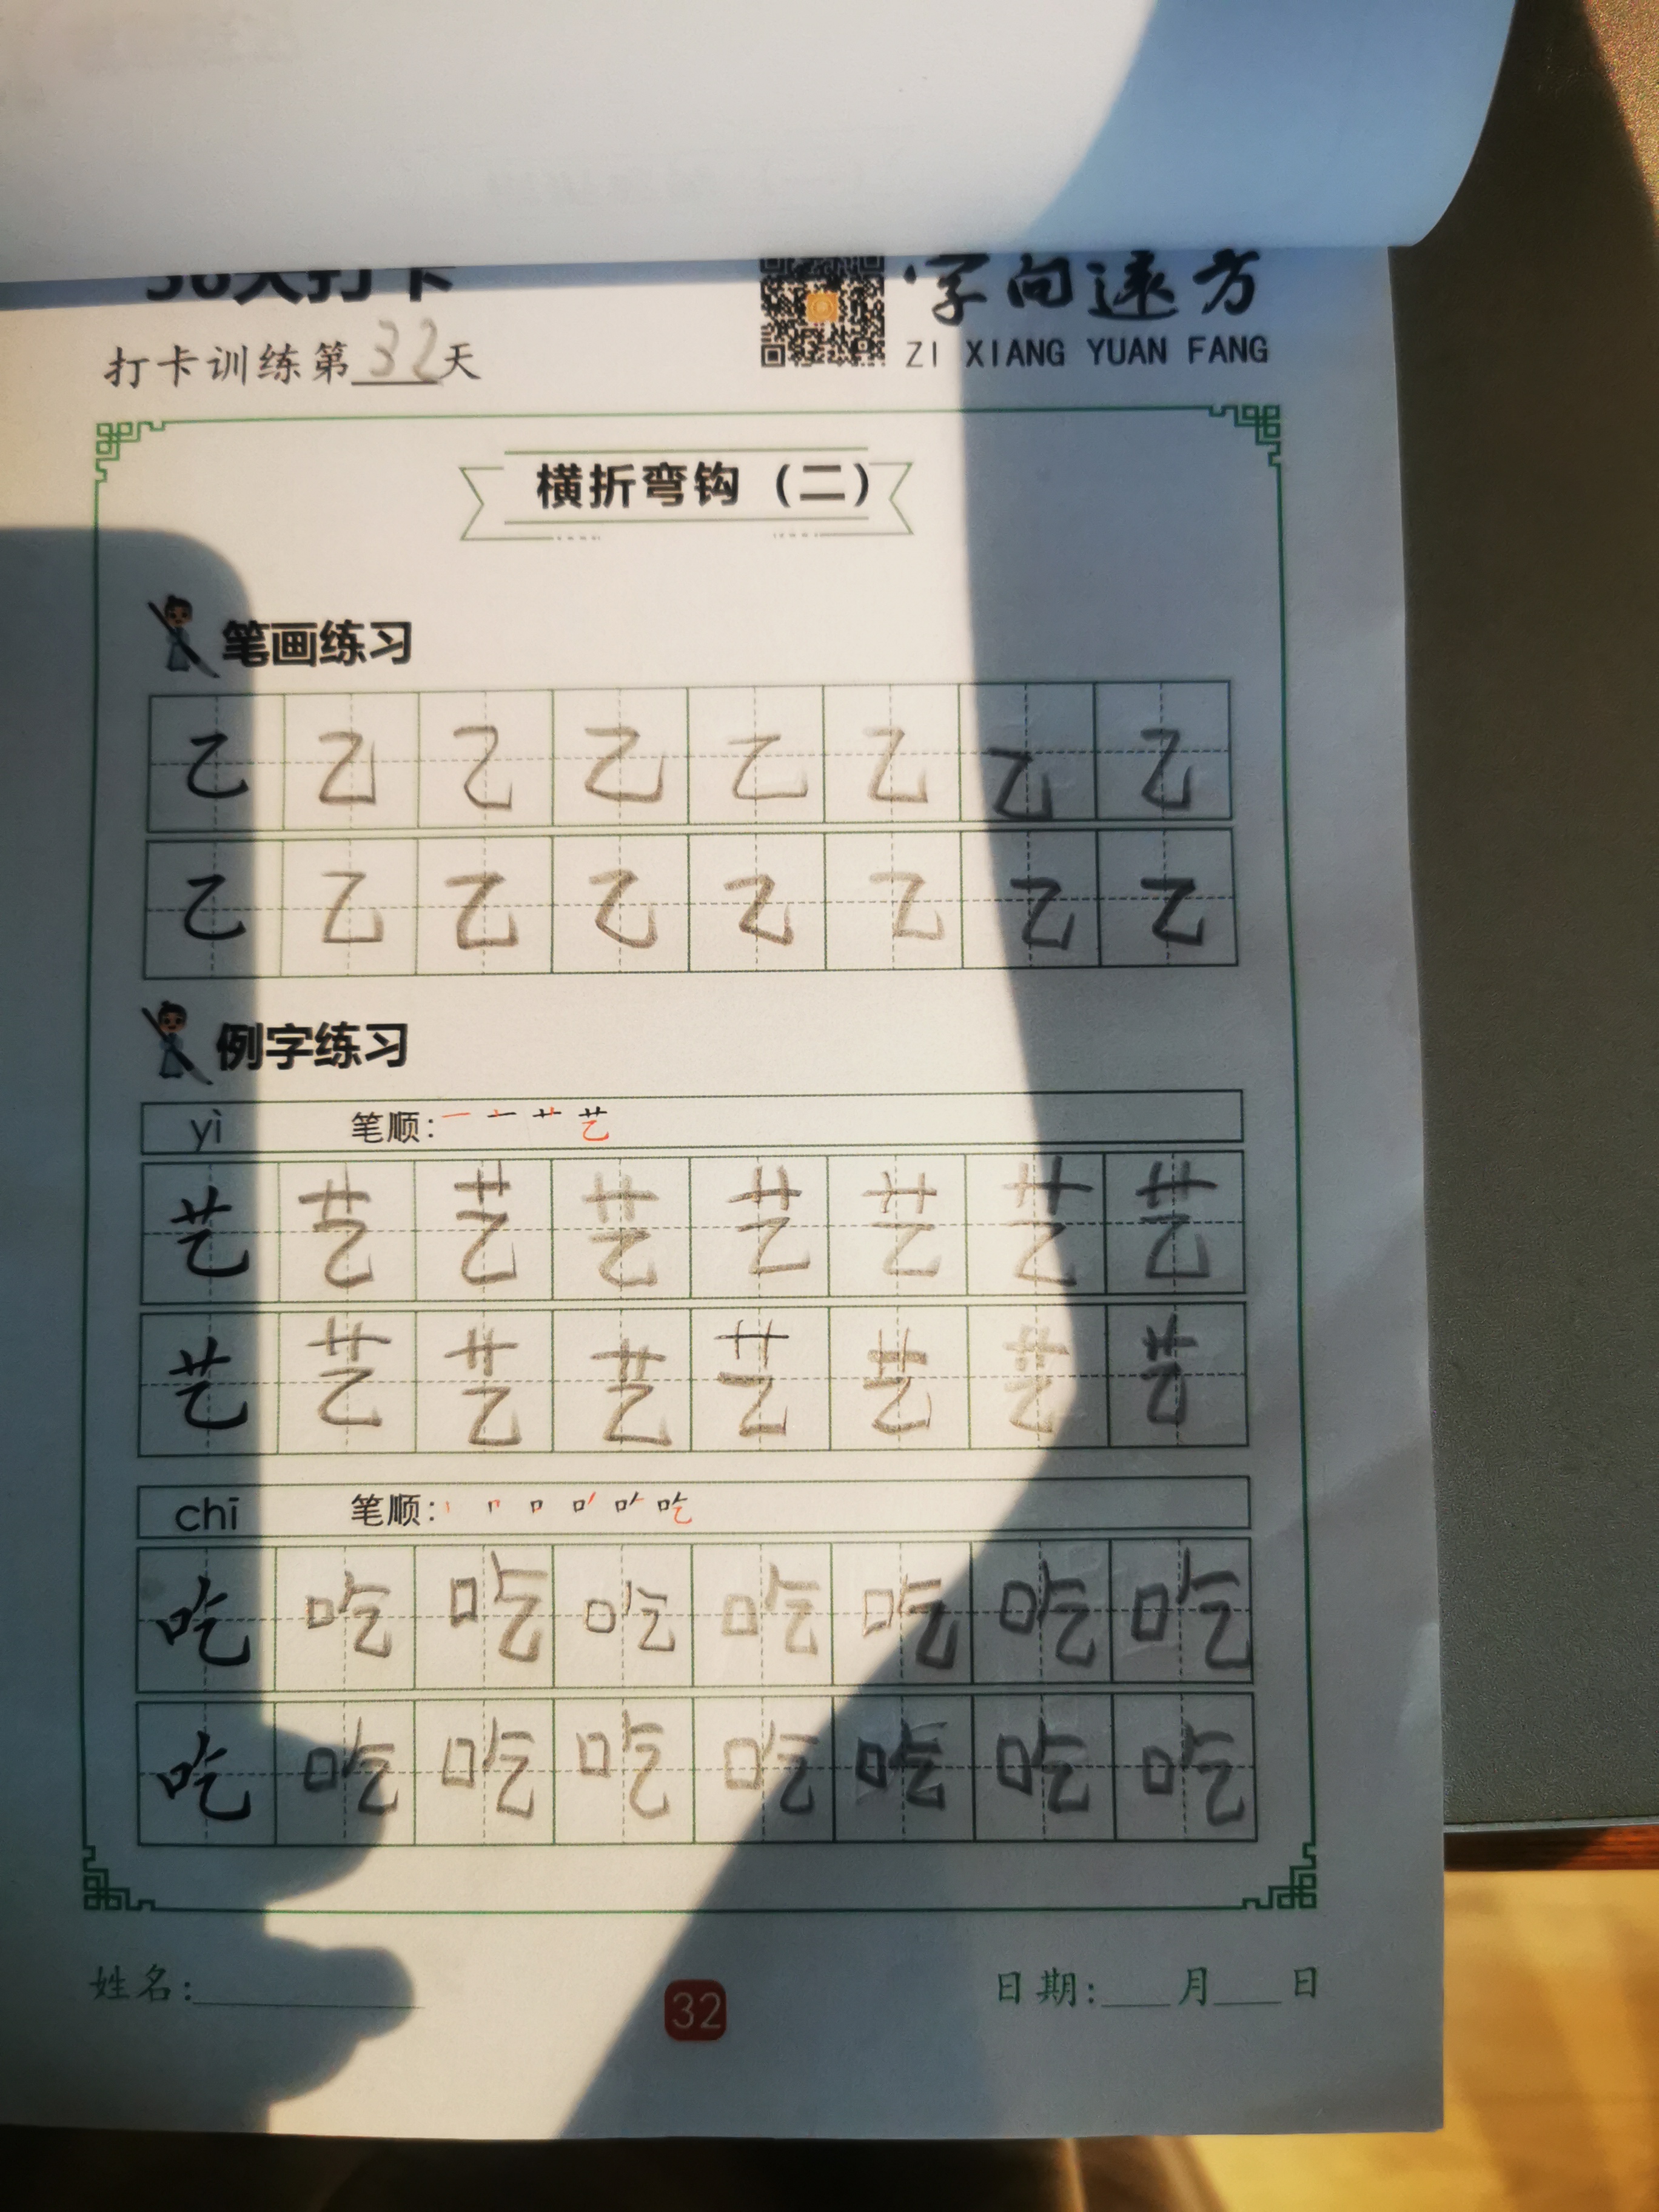 天打卡
字向远方
ZI XIANG YUAN FANG
打卡训练第32天
横折弯钩（二）
笔画练习
乙 乙 乙 乙 乙 乙 乙 乙
乙 乙 乙 乙 乙 乙 乙 乙
例字练习
yì 笔顺: 一 艹 艺
艺 艺 艺 艺 艺 艺 艺 艺
艺 艺 艺 艺 艺 艺 艺 艺
chī 笔顺: 丨 冂 口 吃
吃 吃 吃 吃 吃 吃 吃 吃
吃 吃 吃 吃 吃 吃 吃 吃
姓名:
32
日期: 月 日